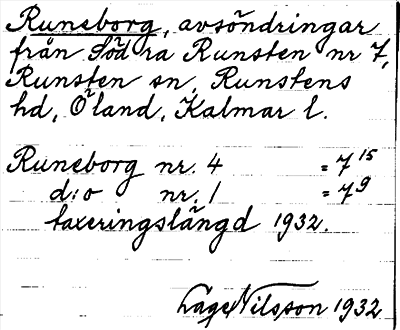 Runeborg, avsöndringar
från Södra Runsten nr 7,
Runsten sn, Runstens
hd, Öland, Kalmar l.
Runeborg nr. 4 = 7 15
d:o nr. 1 = 7 9
taxeringslängd 1932.
Lage Nilsson 1932